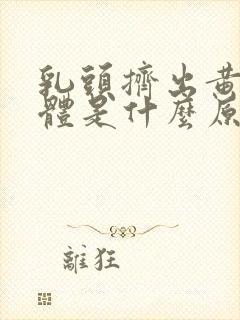 乳頭擠出黃
體是什麼原
離狂